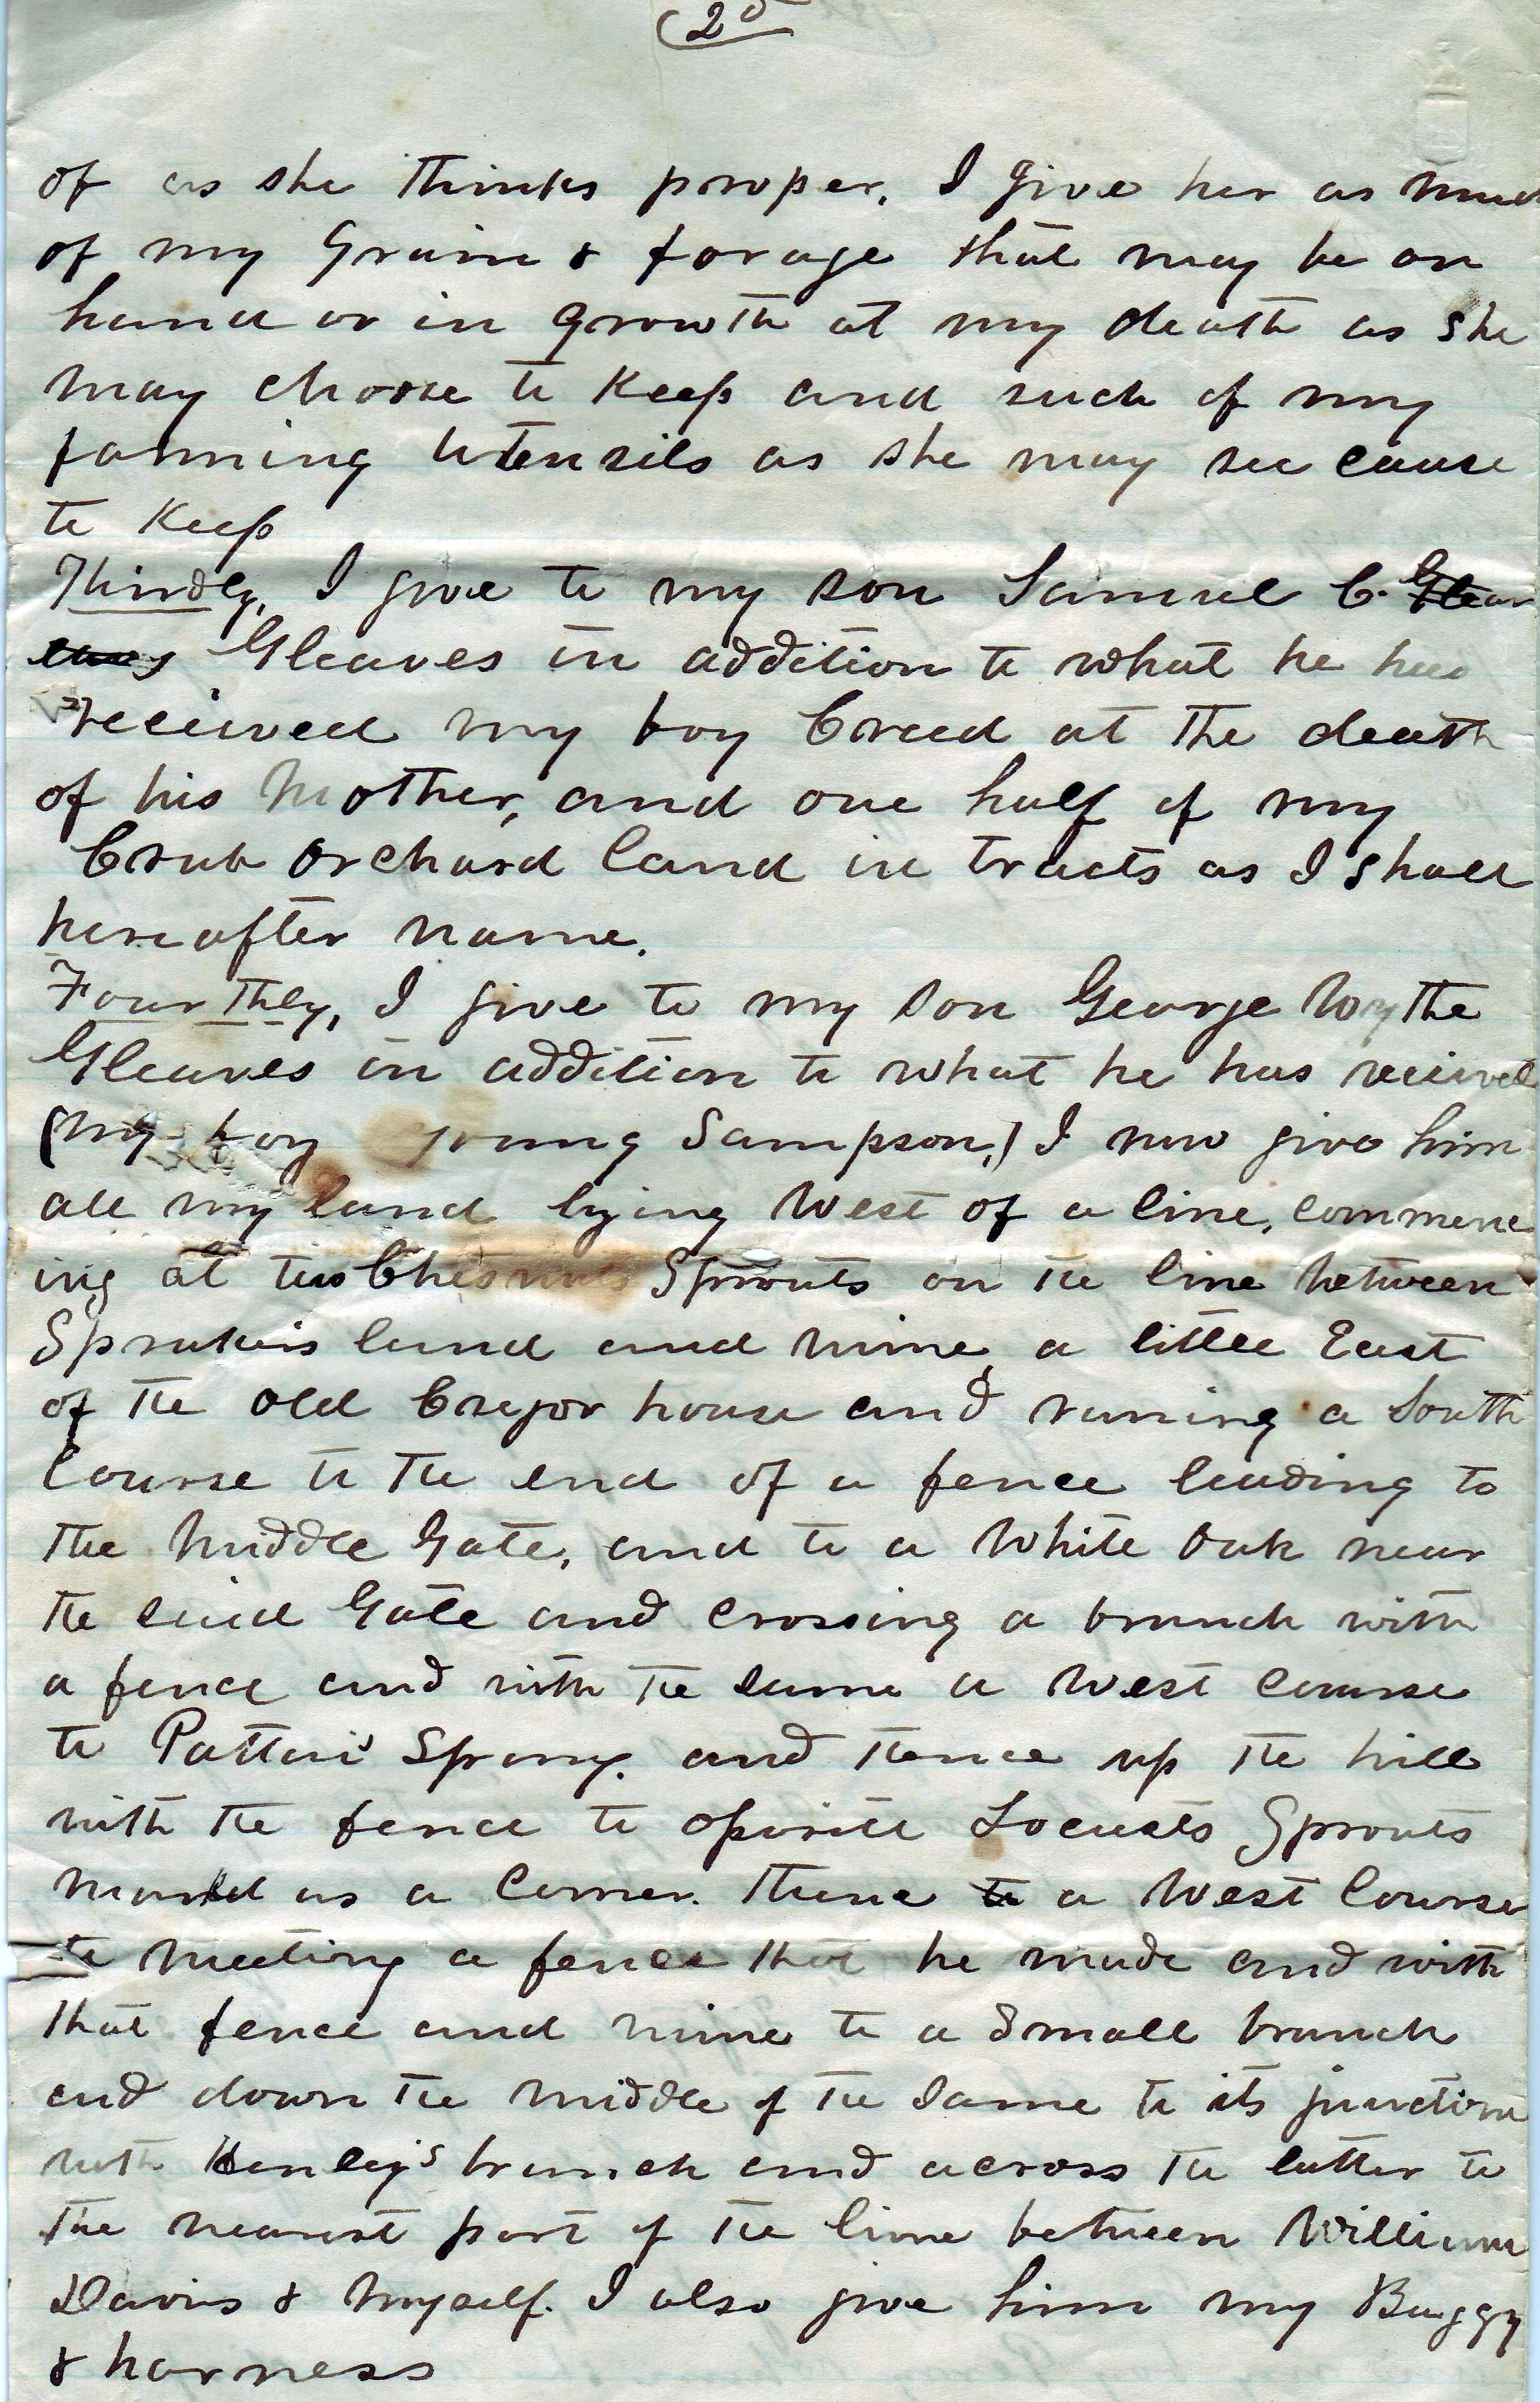 (2d
of as she thinks proper. I give her as much
of my Grain & forage that may be on
hand or in growth at my death as she
may choose to Keep and such of my
farming utensils as she may see cause
to Keep
Thirdly, I give to my son Samuel C.
Gleaves in addition to what he has
received my boy Creed at the death
of his Mother, and one half of my
Crab orchard land in tracts as I shall
hereafter name.
Fourthly, I give to my son George Wythe
Gleaves in addition to what he has reeived
(my boy young Sampson,) I now give him
all my land lying West of a line, commenc
ing at two Chesnuts Sprouts on the line between
land and mine, a little East
of the old Cregor house and runing a South
Course to the end of a fence leading to
the Middle Gate, and to a White Oak near
the said Gate and crossing a branch with
a fence and with the same a West course
to Patton's Spring. and thence up the hill
with the fence to oposite Locusts Sprouts
marked as a Corner. Thence a West Course
to meeting a fence that he made and with
that fence and mine to a Small branch
and down the middle of the same to its junction
with Henley's branch and across the latter to
the nearest part of the line between William
Davis & Myself. I also give him my Buggy
& harness